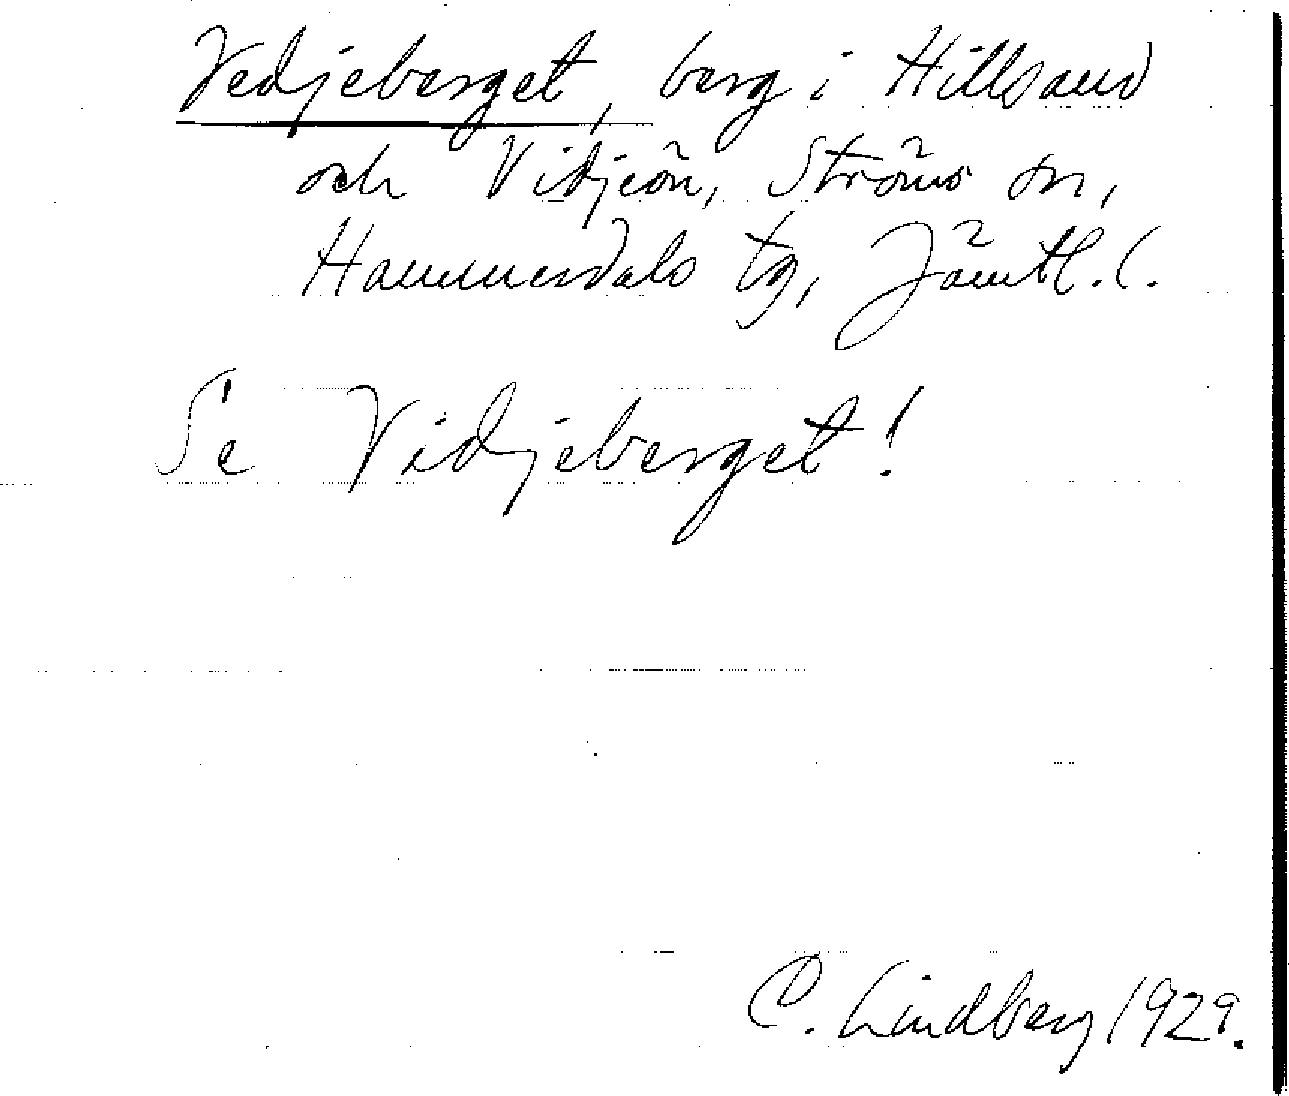 Vedjeberget, berg i Hillsand
och Vidjeön, Ströms sn,
Hammerdals tg, Jämtl. l.
Se Vidjeberget!
C. Lindberg 1929.